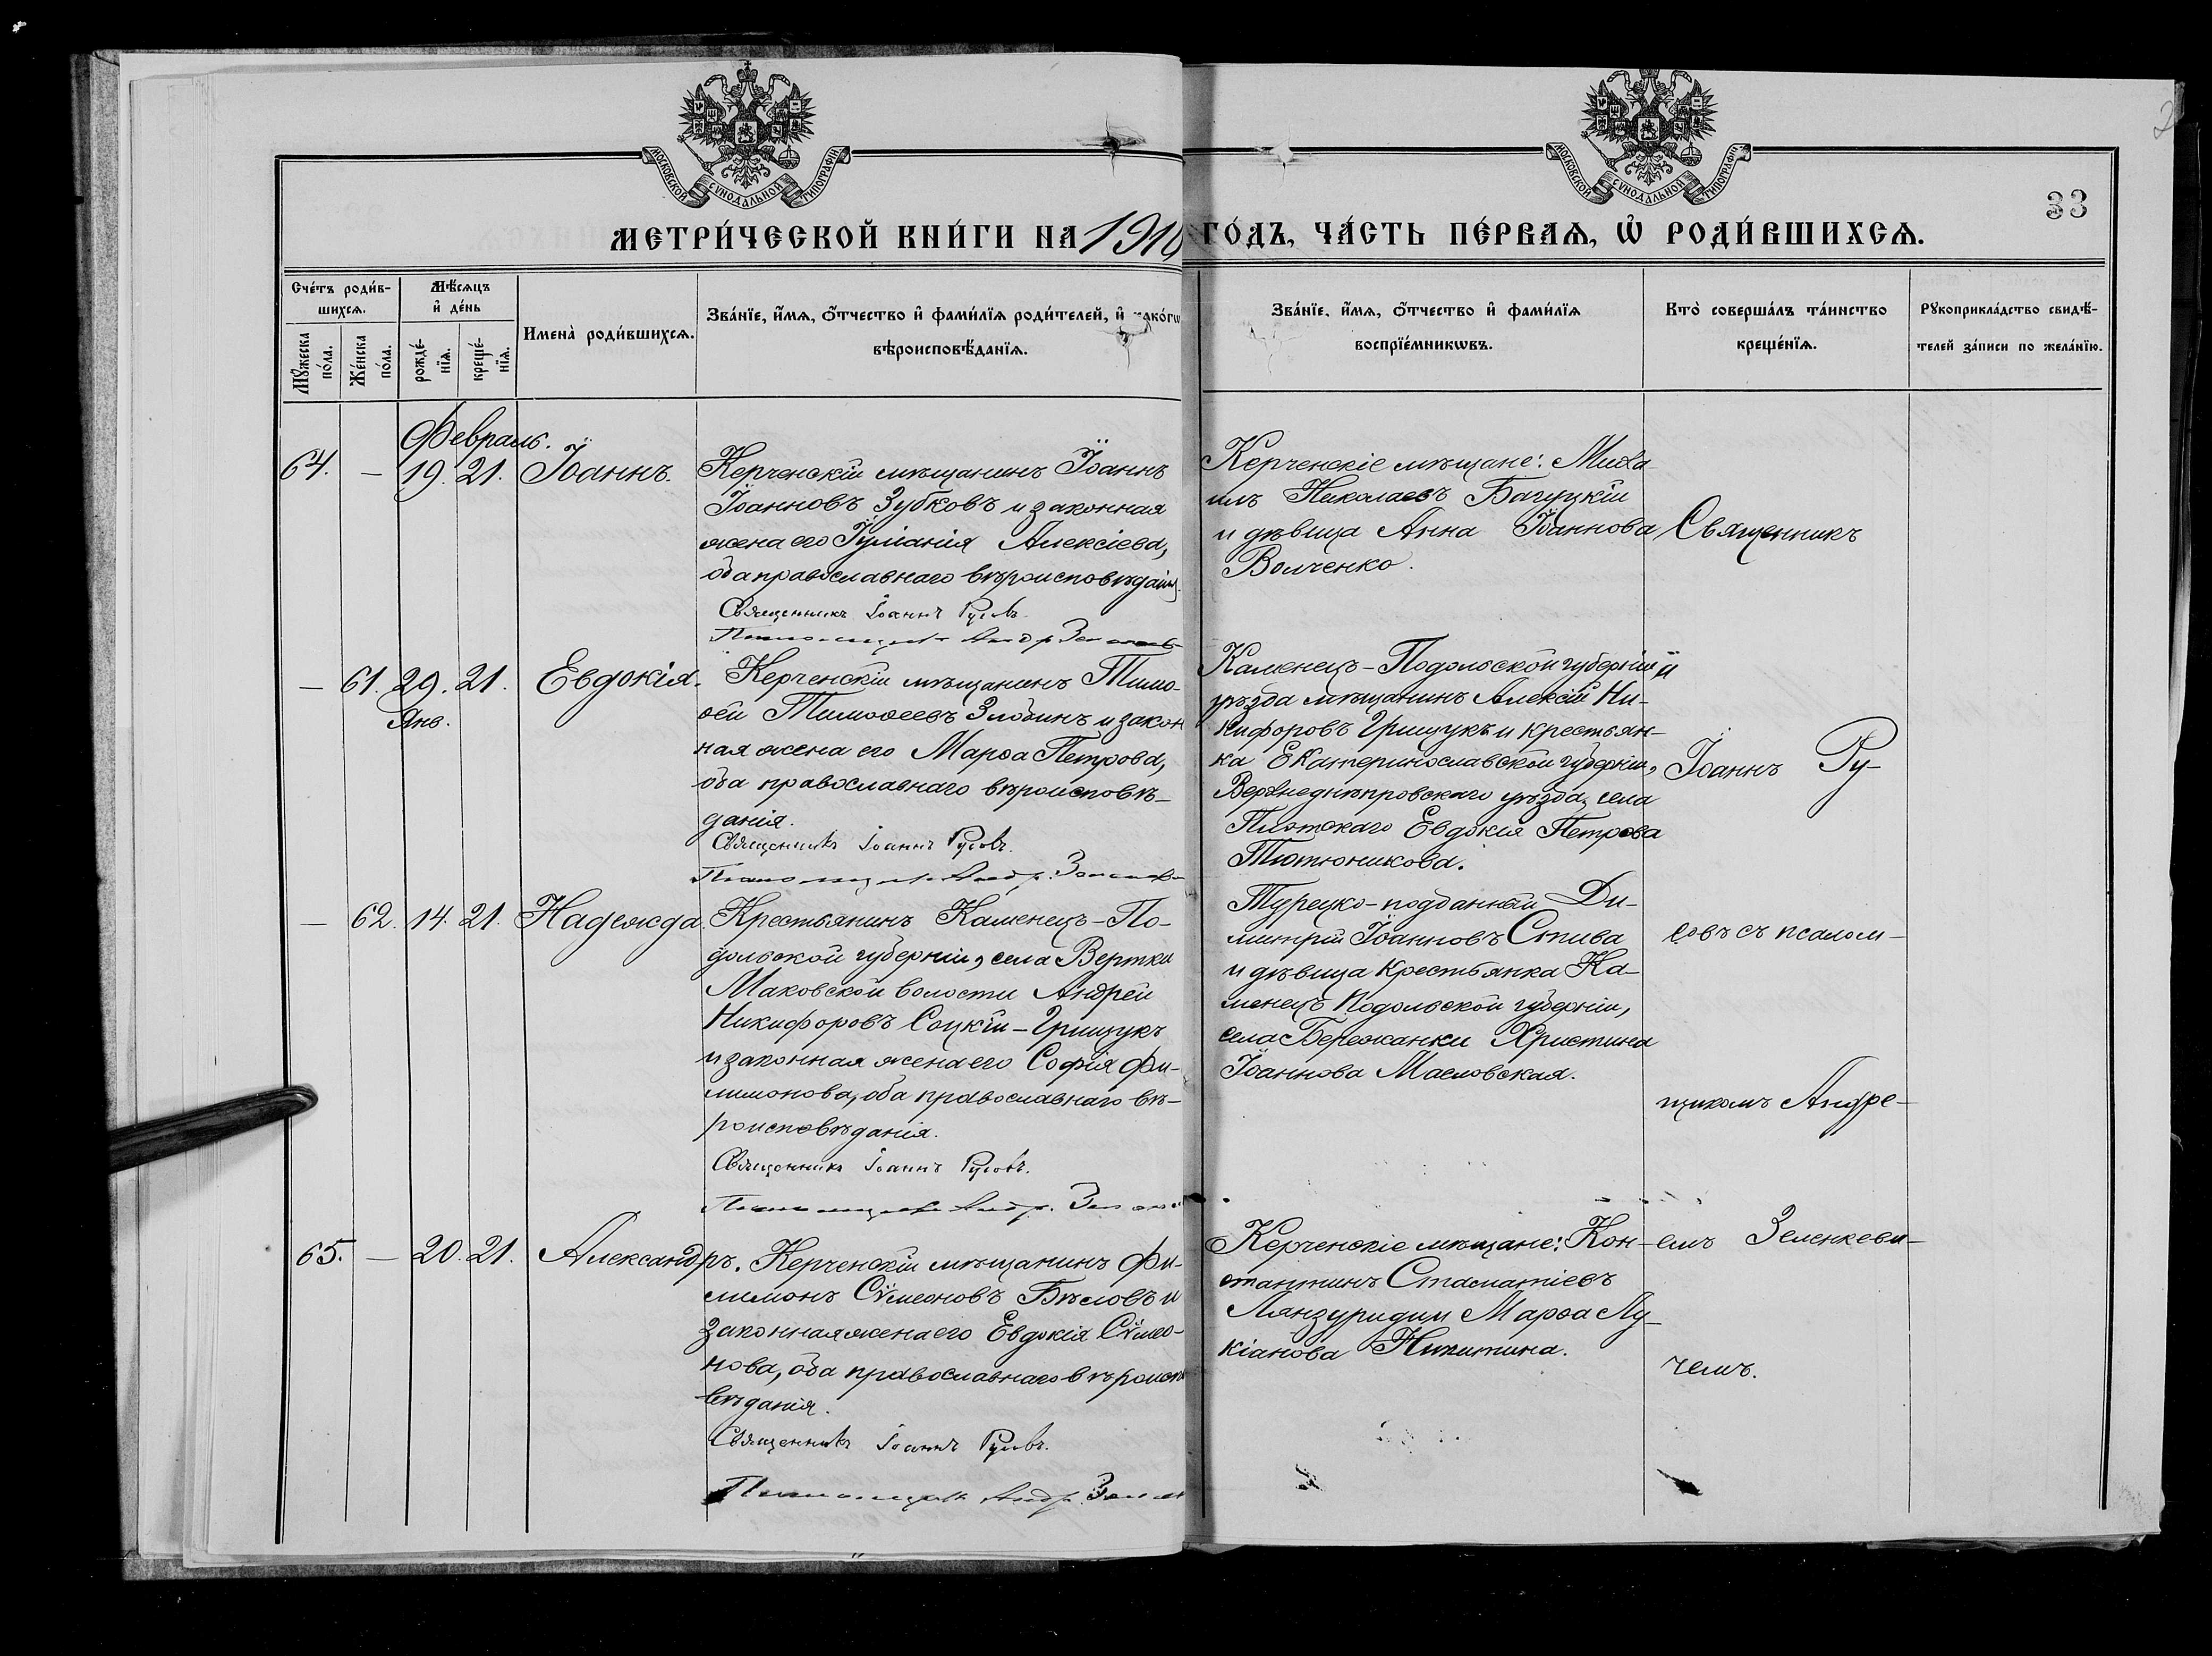 МОСКОВСКОЙ СѴНОДАЛЬНОЙ ТИПОГРАФІИ
МОСКОВСКОЙ СѴНОДАЛЬНОЙ ТИПОГРАФІИ
33
МЕТРИ́ЧЕСКОЙ КНИ́ГИ НА 1910 ГО́ДЪ, ЧА́СТЬ ПЕ́РВАѦ, Ѡ҆ РОДИ́ВШИХСѦ.
Сче́тъ роди́в-
шихсѧ.
Мꙋ́жеска
по́ла.
Же́нска
по́ла.
Мѣ́сѧцъ
и҆ де́нь
рожде́-
нїѧ.
креще́-
нїѧ.
Имена̀ роди́вшихсѧ.
Зва́нїе, и҆́мѧ, ѻ҆́тчество и҆ фами́лїѧ роди́телей, и҆ како́гѡ
вѣроисповѣ́данїѧ.
Зва́нїе, и҆́мѧ, ѻ҆́тчество и҆ фами́лїѧ
воспрїе́мникѡвъ.
Кто̀ соверша́лъ та́инство
креще́нїѧ.
Рꙋкоприкла́дство свидѣ́-
телей за́писи по жела́нїю.
Февраль.
64. — 19. 21. Іоаннъ.
Керченскій мѣщанинъ Іоаннъ
Іоанновъ Зубковъ и законная
жена его Іуліанія Алексіева,
оба православнаго вѣроисповѣданія.
Священникъ Іоаннъ Русовъ.
Псаломщикъ Андр.
Керченскіе мѣщане: Миха-
илъ Николаевъ Багуцкій
и дѣвица Анна Іоаннова
Волченко.
Священникъ
— 61. 29. 21. Евдокія.
Янв.
Керченскій мѣщанинъ Тимо-
ѳей Тимоѳеевъ Злобинъ и закон
ная жена его Марѳа Петрова,
оба православнаго вѣроисповѣ-
данія.
Священникъ Іоаннъ Русовъ.
Псаломщикъ Андр.
Каменецъ-Подольской губерніи и
уѣзда мѣщанинъ Алексій Ни-
кифоровъ Грищукъ и крестьян-
ка Екатеринославской губерніи,
Верхнеднѣпровскаго уѣзда, села
Евдокія Петрова
Тютюникова.
Іоаннъ Ру-
— 62. 14. 21. Надежда.
Крестьянинъ Каменецъ-По-
дольской губерніи, села Вертки
Маковской волости Андрей
Никифоровъ Соцкій-Грищукъ
и законная жена его Софія Фи-
лимонова, оба православнаго вѣ-
роисповѣданія.
Священникъ Іоаннъ Русовъ.
Псаломщикъ Андр.
Турецко-подданный Ди-
митрій Іоанновъ Стива
и дѣвица крестьянка Ка-
менецъ Подольской губерніи,
села Бережанки Христина
Іоаннова Масловская.
совъ съ псалом-
щикомъ Андре-
65. — 20. 21. Александръ.
Керченскій мѣщанинъ Фи-
лимонъ Сѵмеоновъ Бѣловъ и
законная жена его Евдокія Сѵмео-
нова, оба православнаго вѣроиспо
вѣданія.
Священникъ Іоаннъ Русовъ.
Псаломщикъ Андр.
Керченскіе мѣщане: Кон-
стантинъ Стаматіевъ
Марѳа Лу-
кіанова Никитина.
емъ Зеленкеви-
чемъ.